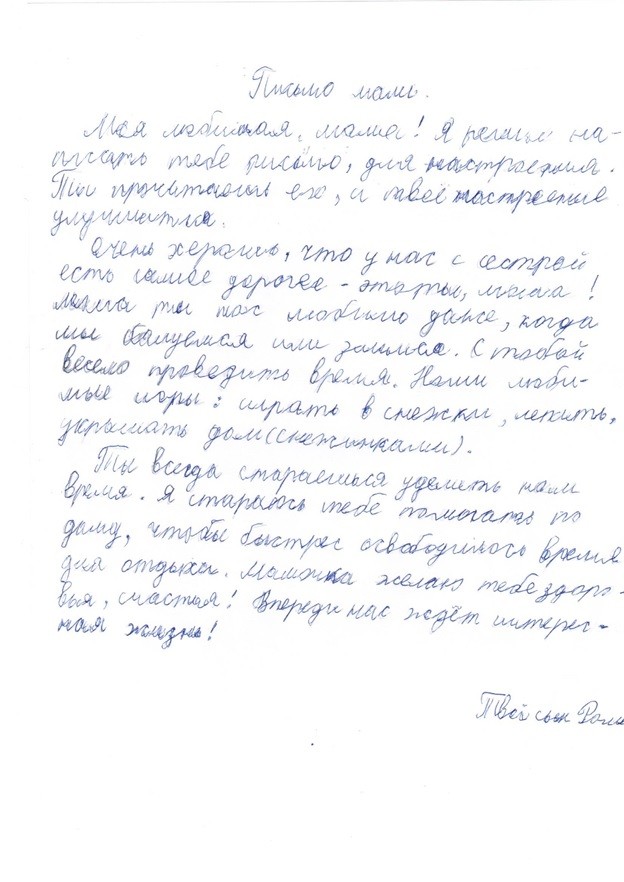 Письмо маме.
Моя любимая, мама! Я решил на-
писать тебе письмо, для настроения.
Ты прочитаешь его, и твоё настроение
улучшится.
Очень хорошо, что у нас с сестрой
есть самое дорогое - это ты, мама!
ты нас любишь даже, когда
мы балуемся или злимся. С тобой
весело проводить время. Наши люби-
мые игры: играть в снежки, лепить,
украшать дом(снежинками).
Ты всегда стараешься уделить нам
время. Я стараюсь тебе помогать по
дому, чтобы быстрее освободилось время
для отдыха. Мамочка желаю тебе здоро-
вья, счастья! Впереди нас ждёт интерес-
ная жизнь!
Твой сын